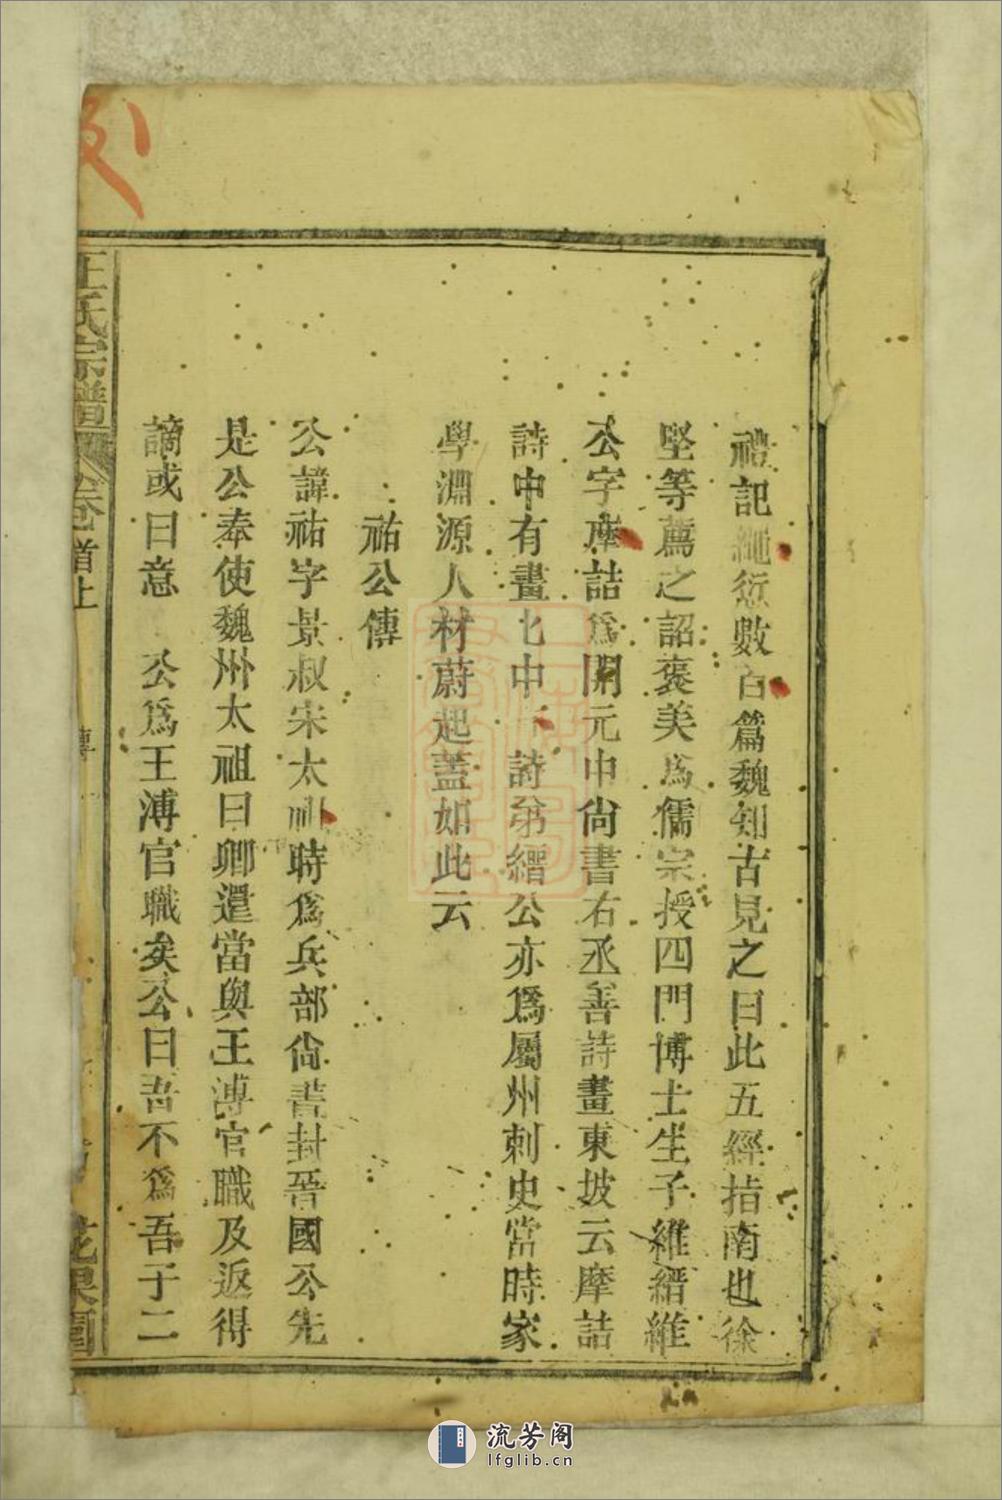 禮記繩愆數百篇魏知古見之曰此五經指南也徐
堅等薦之詔褒美為儒宗授四門博士生子維縉維
公字摩詰爲開元中尙書右丞善詩畫東坡云摩詰
詩中有畫中詩弟縉公亦爲屬州刺史當時家
學淵源人材蔚起蓋如此云
祐公傳
公諱祐字景叔宋太祖時爲兵部尙書封晉國公先
是公奉使魏州太祖曰卿還當與王溥官職及返得
謫或曰意 公爲王溥官職矣公曰吾不爲吾子二
王氏宗譜 卷首上 傳 花果園
流芳阁
lfglib.cn